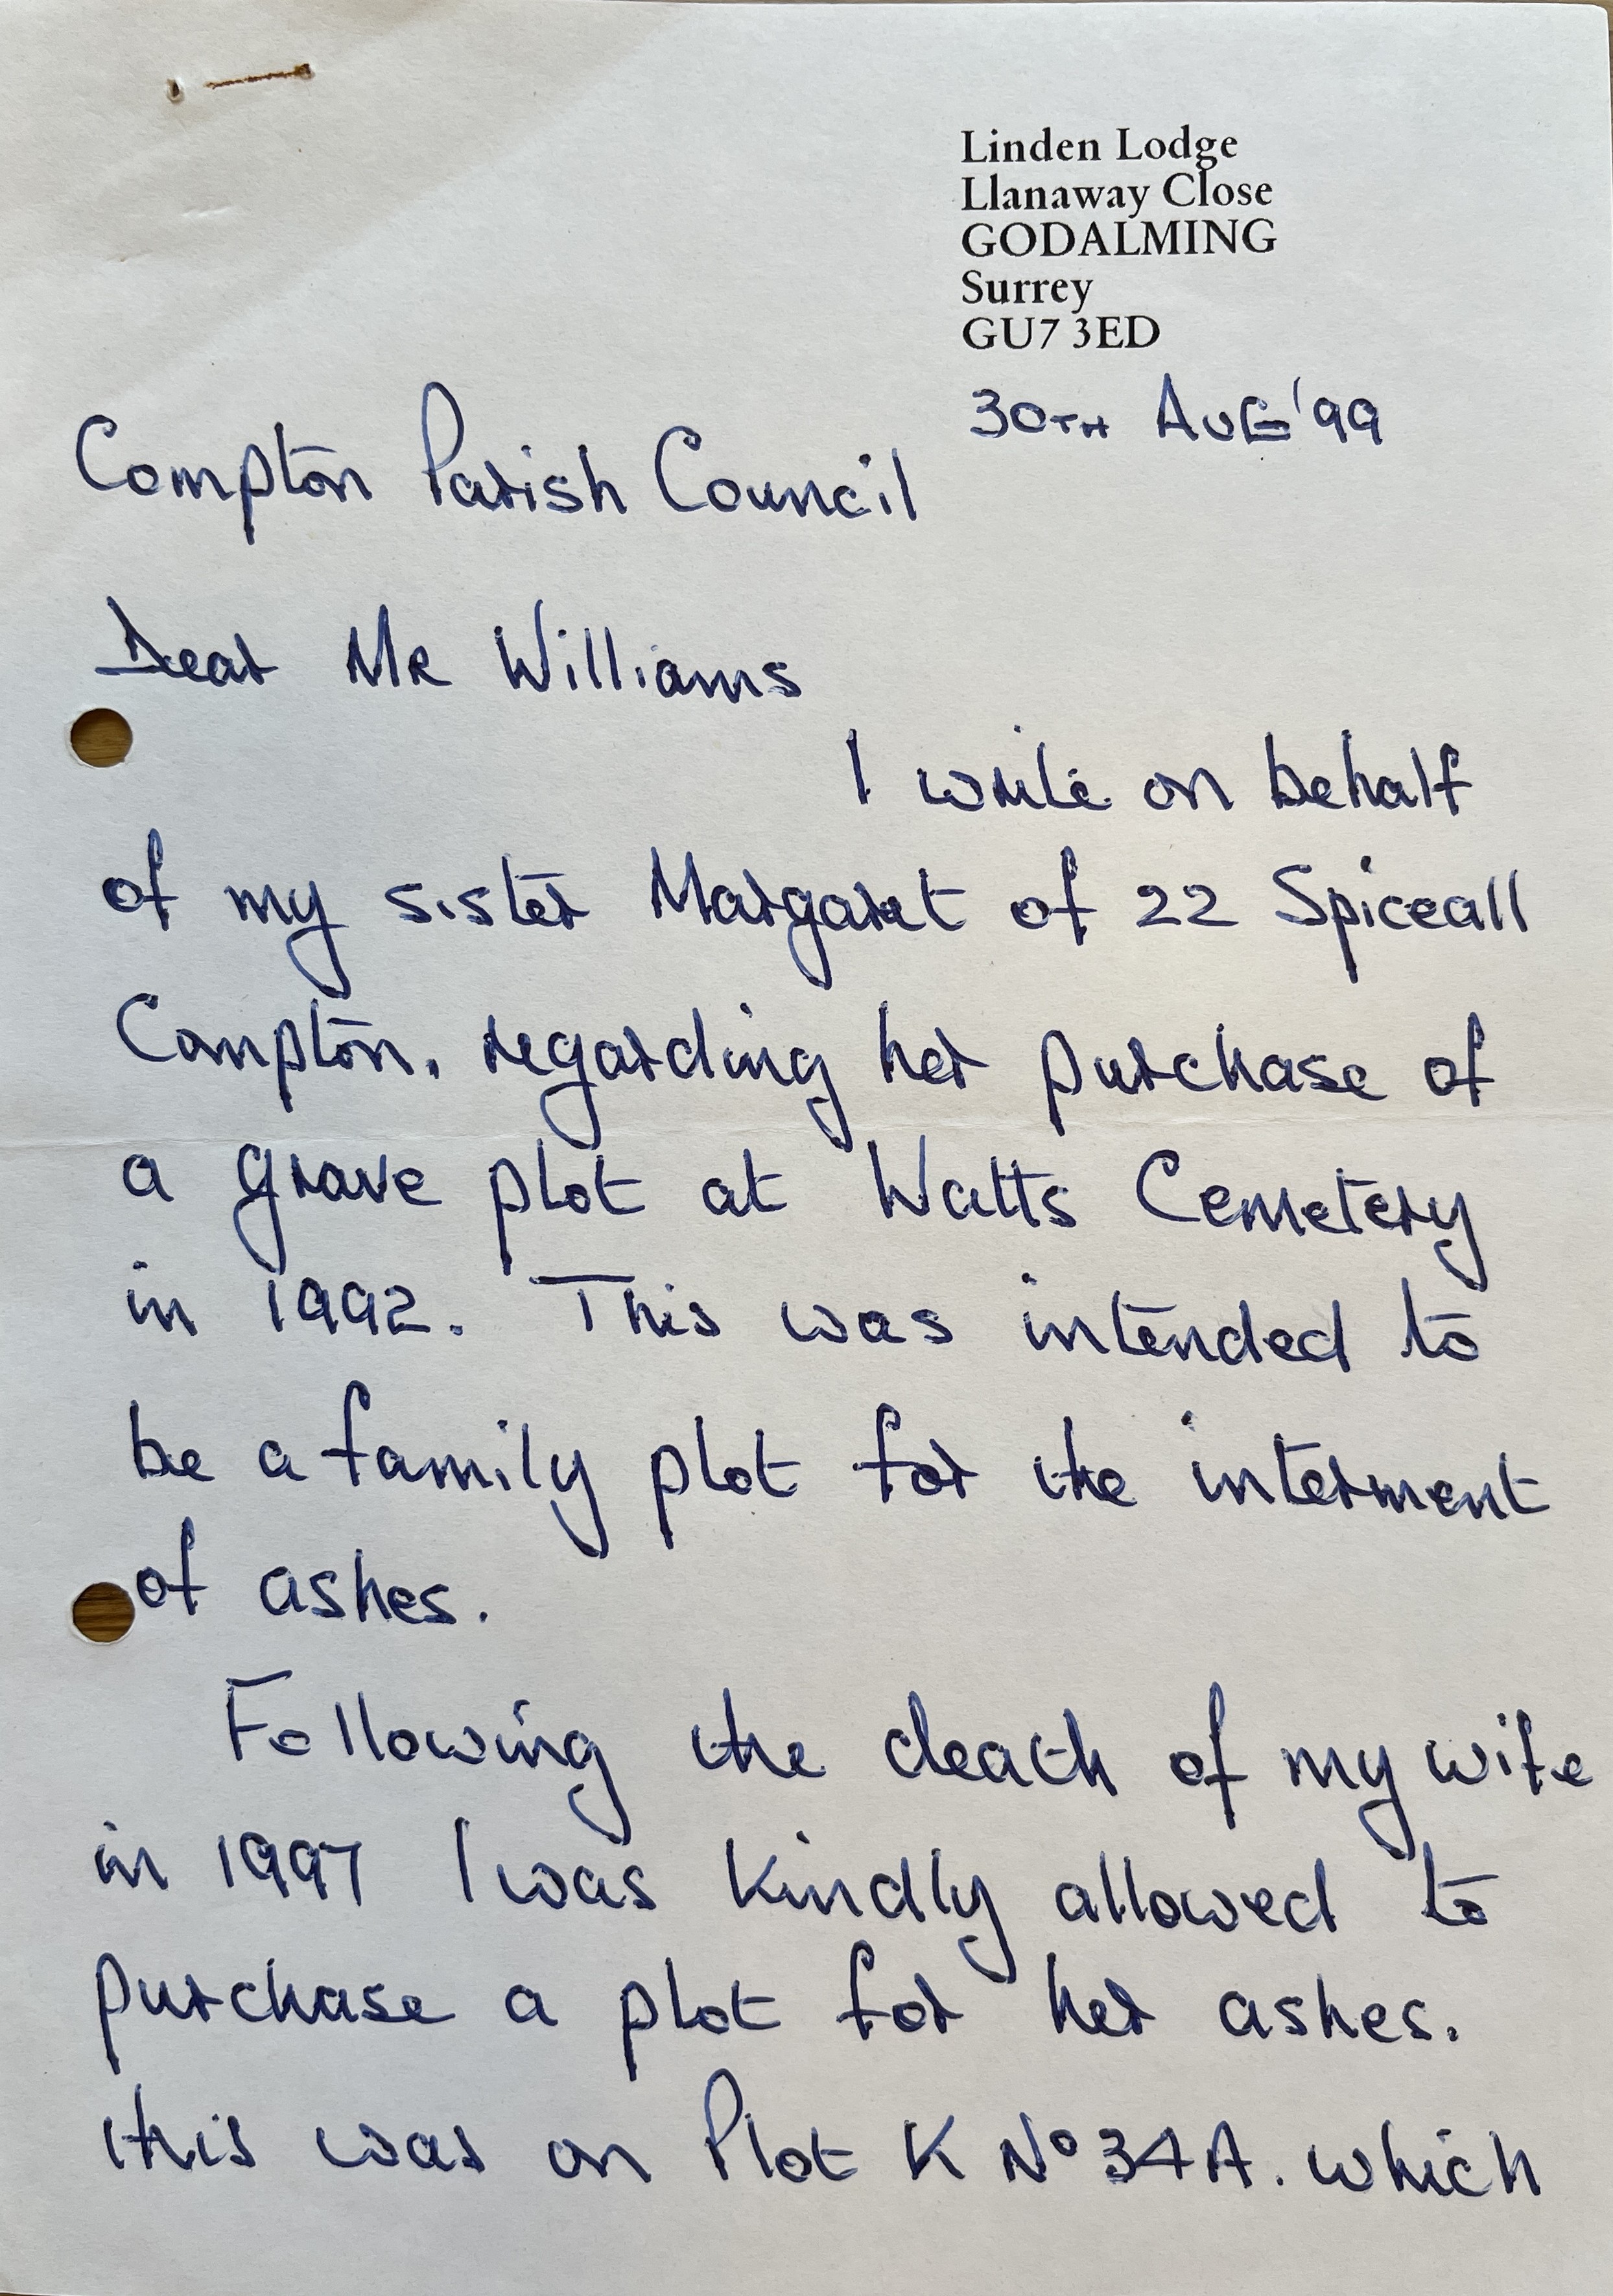 Linden Lodge
Llanaway Close
GODALMING
Surrey
GU7 3ED
30TH AUG '99
Compton Parish Council
Dear Mr Williams
I write on behalf
of my sister Margaret of 22 Spiceall
Compton, regarding her purchase of
a grave plot at Watts Cemetery
in 1992. This was intended to
be a family plot for the interment
of ashes.
Following the death of my wife
in 1997 I was kindly allowed to
purchase a plot for her ashes.
this was on Plot K No 34A. which